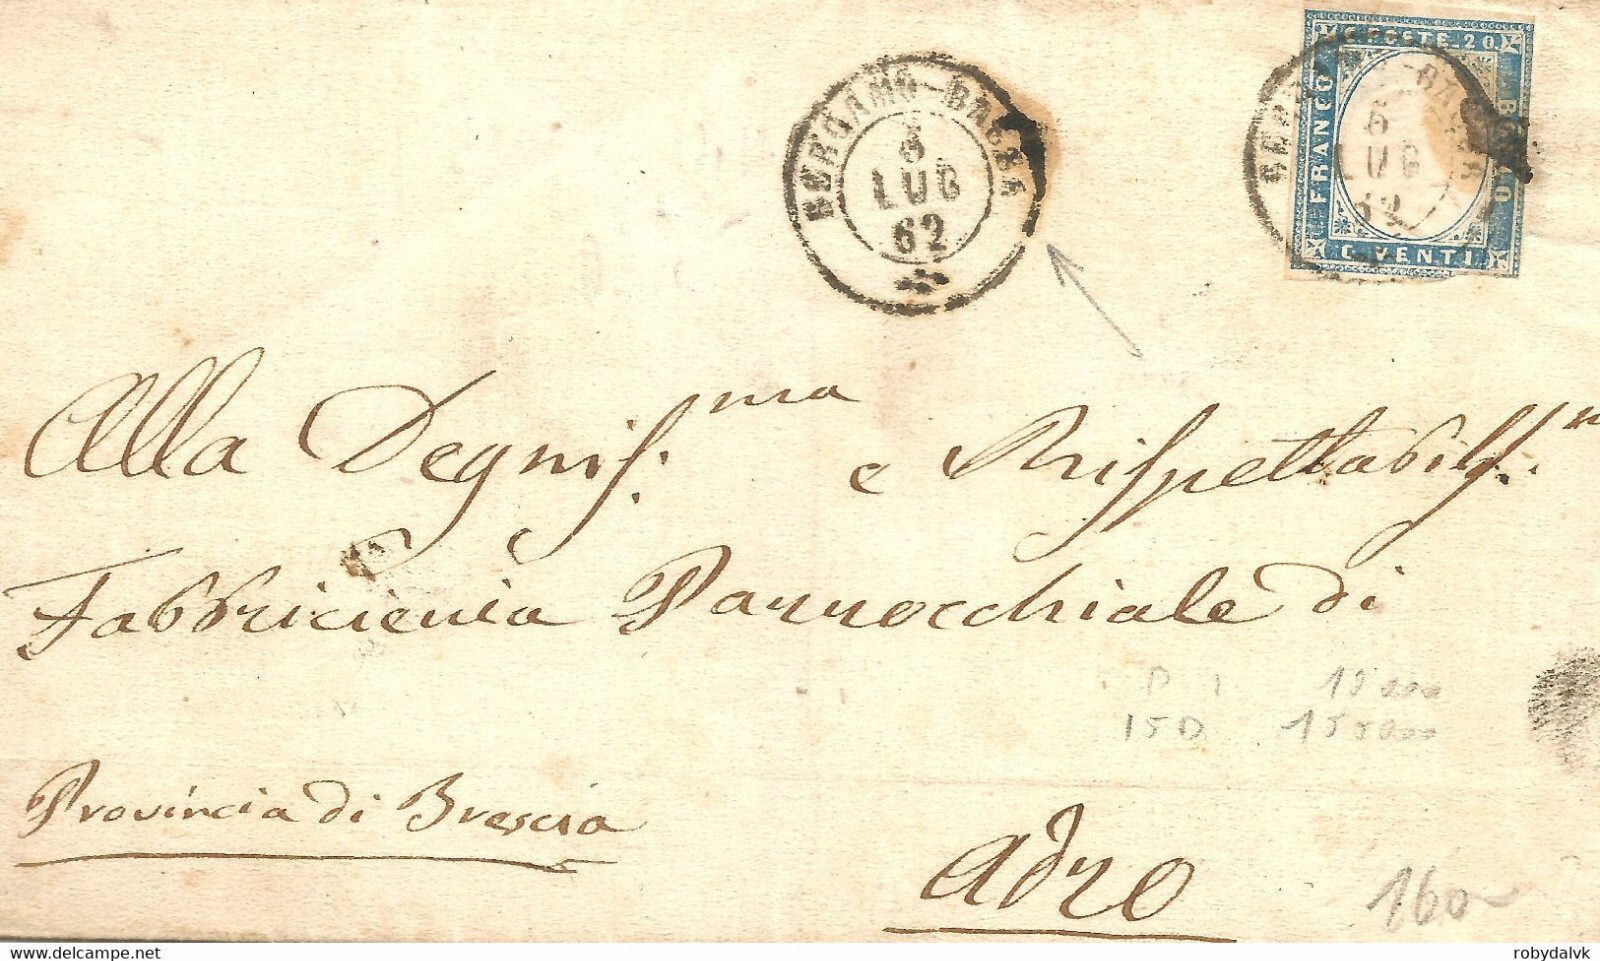 BERGAMO-BASSA
6
LUG
62
C. POSTE. 20
FRANCO
BOLLO
C. VENTI
BERGAMO-BASSA
6
LUG
62
Alla Degnis.ma e Rispettabilis.
Fabbricieria Parrocchiale di
15D 155000
Provincia di Brescia
Adro
160
www.delcampe.net
robydalvk